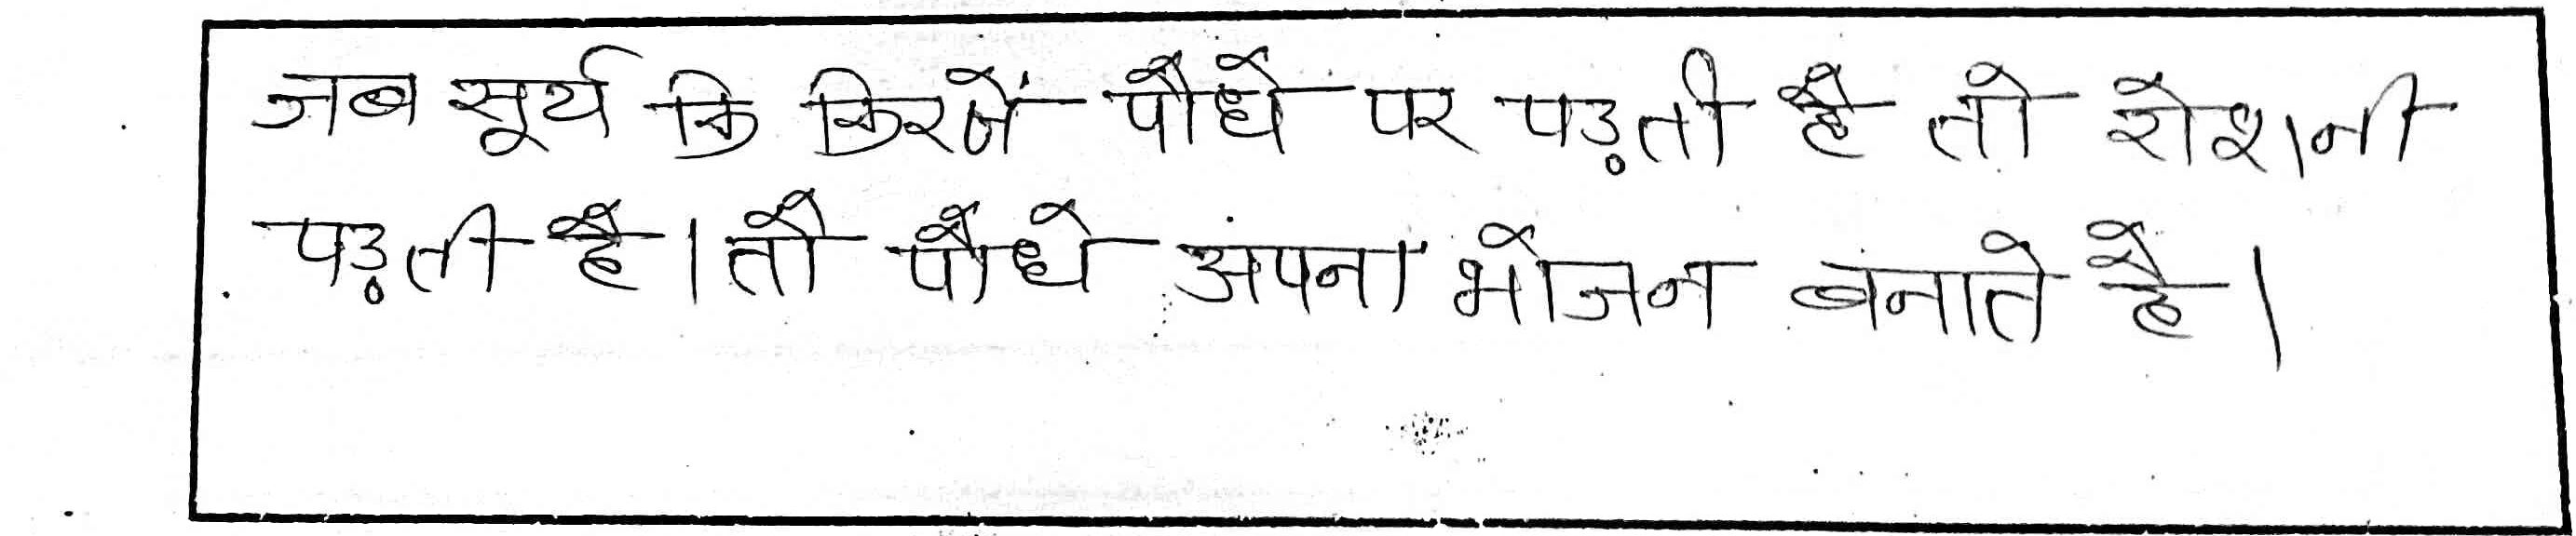 जब सूर्य कि किरणें पौधे पर पड़ती है तो रोशनी
पड़ती है। तौ पौधे अपना भोजन बनाते है।